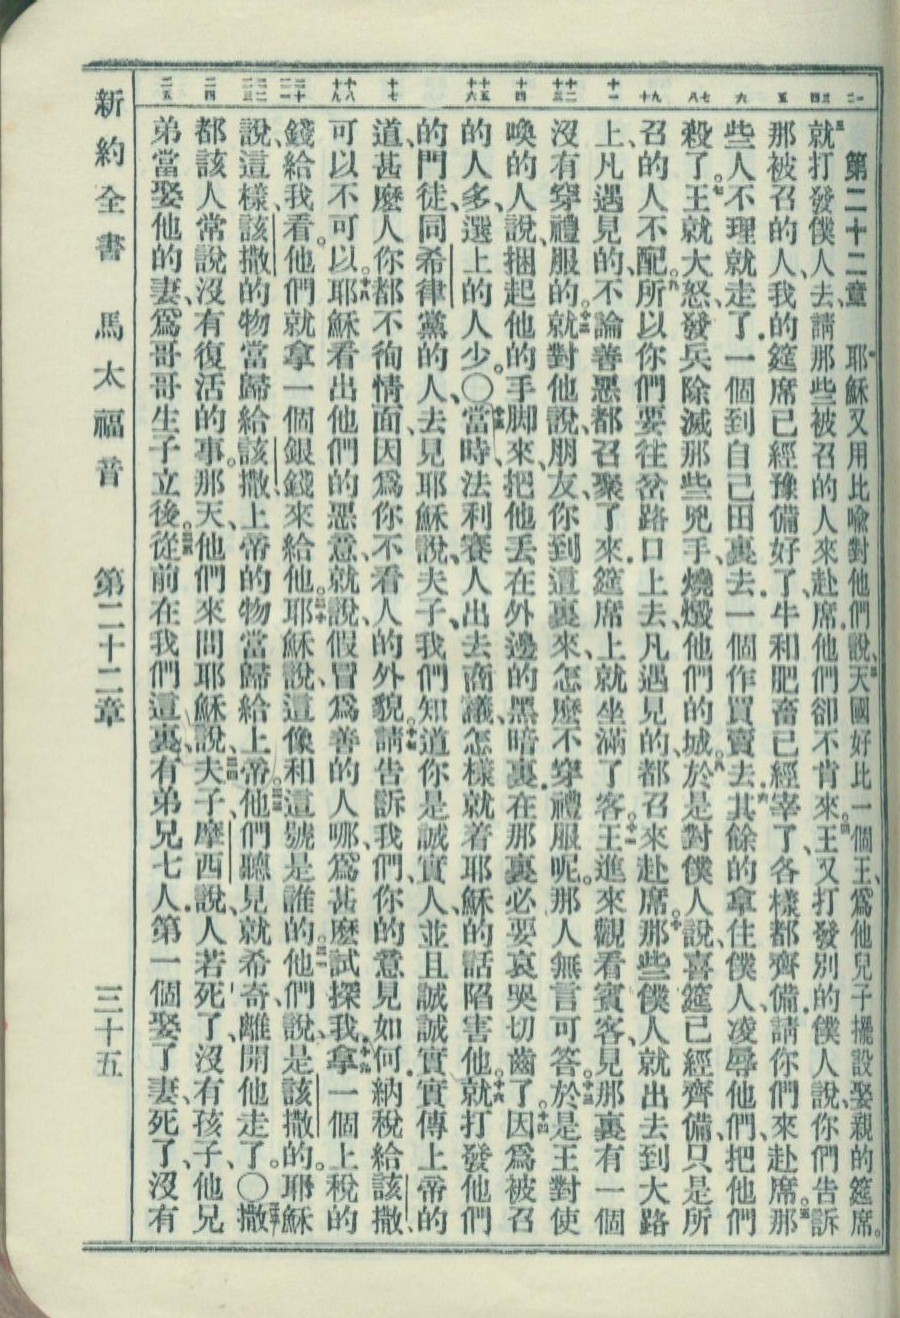 第二十二章 耶穌又用比喻對他們說、天國好比一個王、爲他兒子擺設娶親的筵席。
就打發僕人去、請那些被召的人來赴席、他們卻不肯來。王又打發別的僕人說、你們告訴
那被召的人、我的筵席已經豫備好了、牛和肥畜已經宰了、各樣都齊備、請你們來赴席。那
些人不理就走了、一個到自己田裏去、一個作買賣去、其餘的拿住僕人、凌辱他們、把他們
殺了。王就大怒、發兵除滅那些兇手、燒燬他們的城。於是對僕人說、喜筵已經齊備、只是所
召的人不配。所以你們要往岔路口上去、凡遇見的、都召來赴席。那些僕人就出去到大路
上、凡遇見的、不論善惡都召聚了來、筵席上就坐滿了客。王進來觀看賓客、見那裏有一個
沒有穿禮服的、就對他說、朋友、你到這裏來、怎麼不穿禮服呢。那人無言可答。於是王對使
喚的人說、捆起他的手脚來、把他丟在外邊的黑暗裏、在那裏必要哀哭切齒了。因爲被召
的人多、選上的人少。〇當時法利賽人出去商議、怎樣就着耶穌的話陷害他。就打發他們
的門徒、同希律黨的人、去見耶穌說、夫子、我們知道你是誠實人、並且誠誠實實傳上帝的
道、甚麼人你都不徇情面、因爲你不看人的外貌。請告訴我們、你的意見如何、納稅給該撒、
可以不可以。耶穌看出他們的惡意、就說、假冒爲善的人哪、爲甚麼試探我。拿一個上稅的
錢給我看。他們就拿一個銀錢來給他。耶穌說、這像和這號是誰的。他們說、是該撒的。耶穌
說、這樣、該撒的物當歸給該撒、上帝的物當歸給上帝。他們聽見就希奇、離開他走了。〇撒
都該人常說沒有復活的事。那天、他們來問耶穌說、夫子、摩西說、人若死了、沒有孩子、他兄
弟當娶他的妻、爲哥哥生子立後。從前在我們這裏、有弟兄七人、第一個娶了妻、死了、沒有
新約全書 馬太福音 第二十二章 三十五